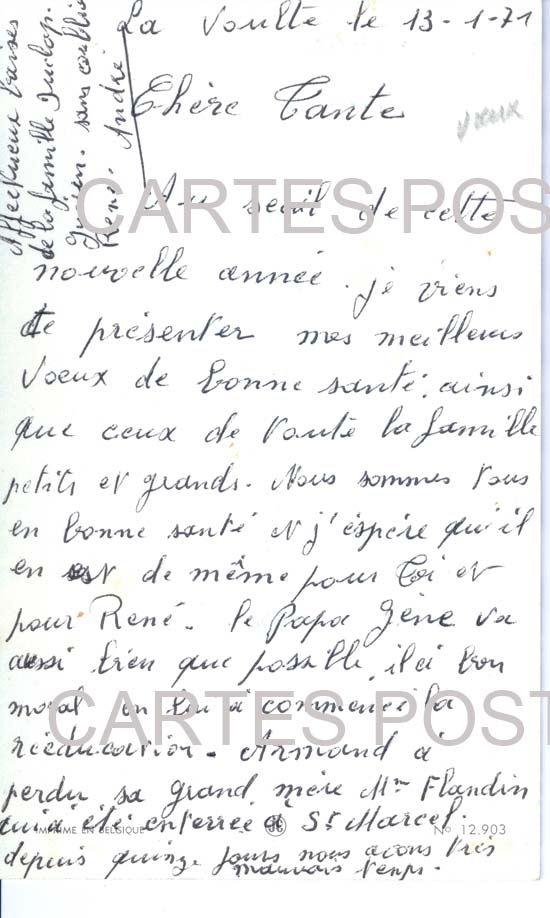 La Voulte le 13-1-71
voeux
Chère Tante
Au seuil de cette
nouvelle année. je viens
te présenter mes meilleurs
Voeux de bonne santé. ainsi
que ceux de toute la famille
petits et grands. Nous sommes tous
en bonne santé et j'éspère qu'il
en est de même pour toi et
pour René. le Papa Gène va
aussi bien que possible, il à bon
moral on lui à commencé la
rééducation. Armand à
perdu sa grand mère Mme Flandin
qui à été enterrée à St Marcel.
depuis quinze jours nous avons très
mauvais temps.
Affectueux baisers
de la famille
sans oublier
René. André
IMPRIMÉ EN BELGIQUE
No 12.903
CARTES POST
CARTES POST